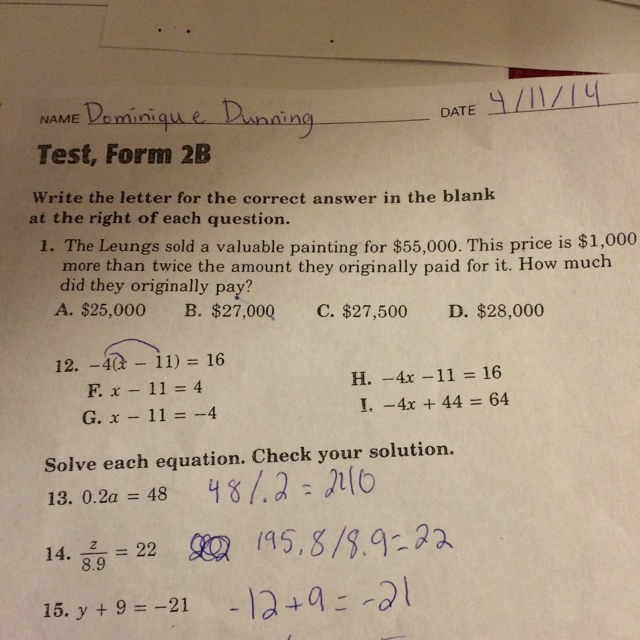 NAME Dominique Dunning DATE 4/11/14
Test, Form 2B
Write the letter for the correct answer in the blank
at the right of each question.
1. The Leungs sold a valuable painting for $55,000. This price is $1,000
more than twice the amount they originally paid for it. How much
did they originally pay?
A. $25,000 B. $27,000 C. $27,500 D. $28,000
12. −4(x − 11) = 16
F. x − 11 = 4
G. x − 11 = −4
H. −4x −11 = 16
I. −4x + 44 = 64
Solve each equation. Check your solution.
13. 0.2a = 48 48/.2 = 240
14. z/8.9 = 22 195.8/8.9=22
15. y + 9 = −21 -12+9=-21